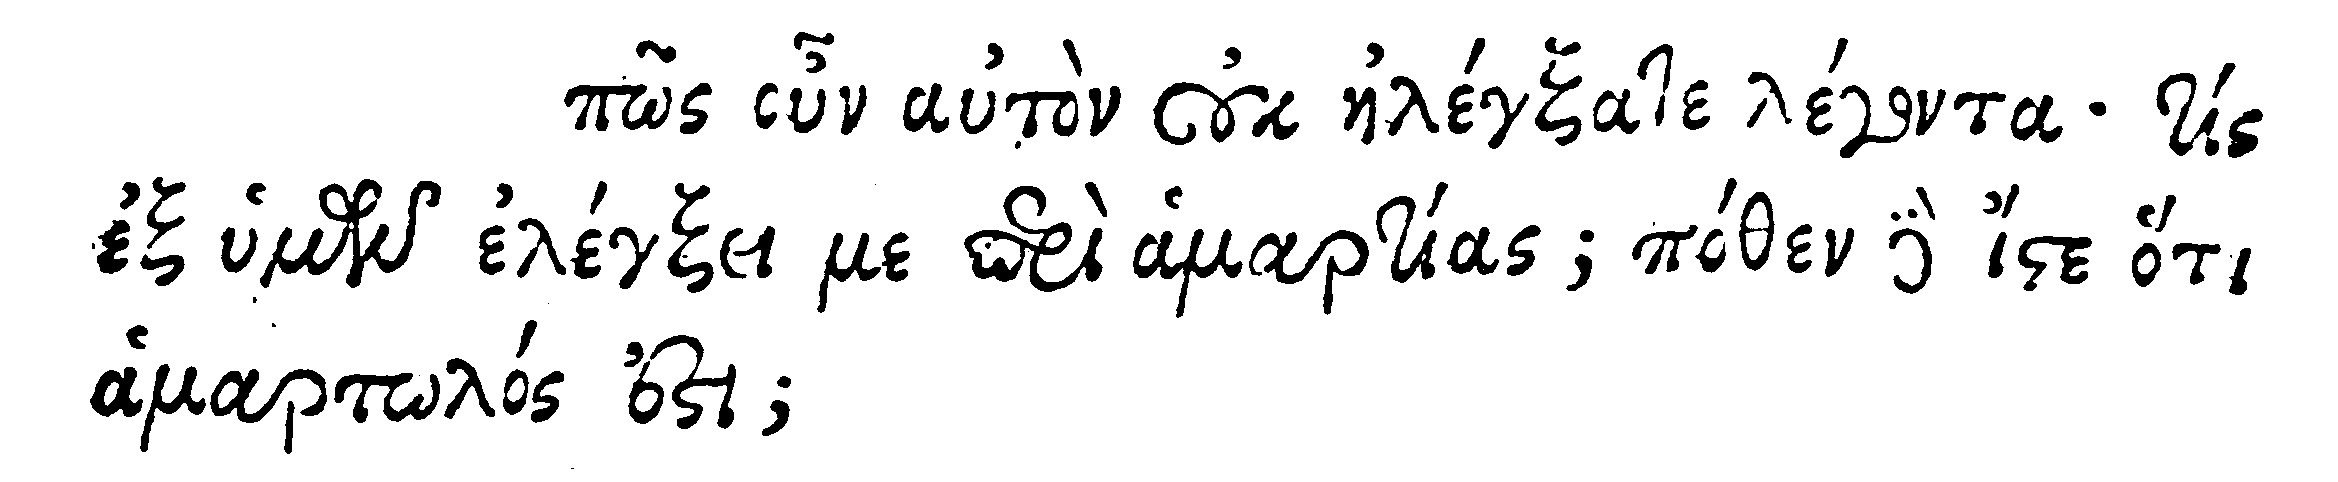 πῶς οὖν αὐτὸν οὐκ ἠλέγξατε λέγοντα· τίς
ἐξ ὑμῶν ἐλέγξει με περὶ ἁμαρτίας; πόθεν δὲ ἴστε ὅτι
ἁμαρτωλός ἐστι;